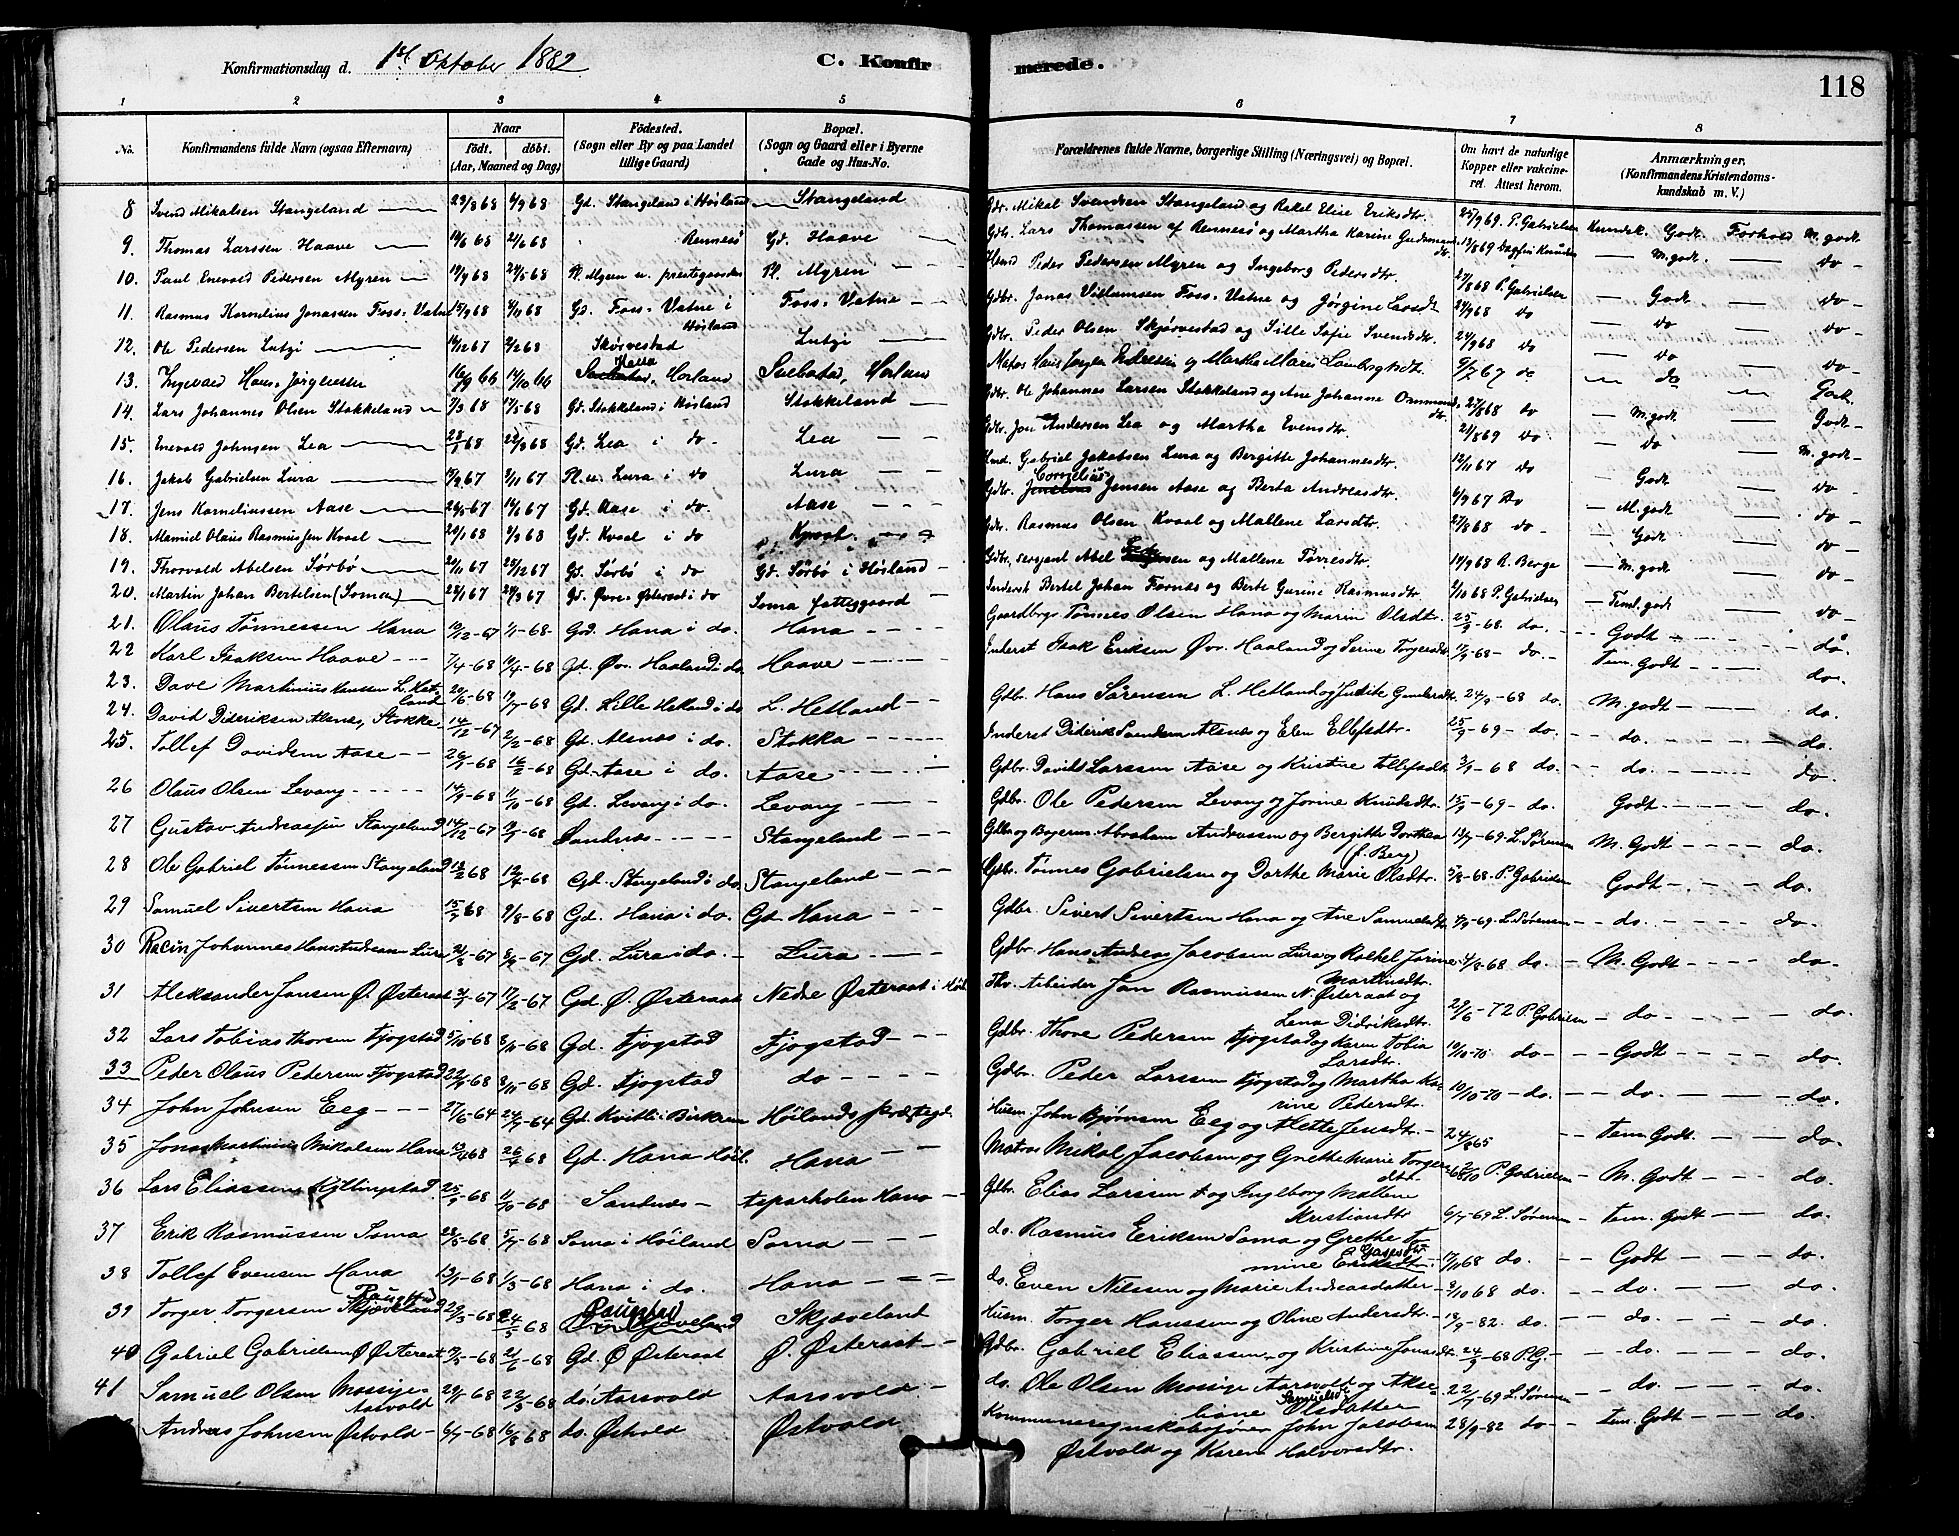 Konfirmationsdag d. 1ste Oktober 1882 C. Konfirmerede. 118
1 2 3 4 5 6 7 8
No. Konfirmandens fulde Navn (ogsaa Efternavn) Naar födt. döbt. (Aar, Maaned og Dag) Födested. (Sogn eller By og paa Landet tillige Gaard) Bopæl. (Sogn og Gaard eller i Byerne Gade og Hus-No. Forældrenes fulde Navne, borgerlige Stilling (Næringsvei) og Bopæl. Om havt de naturlige Kopper eller vakcineret. Attest herom. Anmærkninger. (Konfirmandens Kristendomskundskab m. V.)
8 Svend Mikalsen Stangeland 6/9 68 Gd. Stangeland i Høiland Stangeland Gdbr. Mikal Svendsen Stangeland og Rakel Elise Eriksdtr. 25/9 69 P. Gabrielsen Kundsk. Godt Forhold M. godt
9. Thomas Larssen Haave 21/6 68 Rennesø Gd. Haave Gdbr. Lars Thomassen af Rennesø og Martha Karine 13/8 69 Dagfin Knudsen M. godt do
10. Paul Enevald Pedersen Myren Pl. Myren u. prestegaarden Pl. Myren Peder Pedersen Myren og Ingeborg Pedersdtr. 27/8 68 P. Gabrielsen Godt do
11. Rasmus Kornelius Jonassen Foss-Vatne 15/9 68 Gd. Foss-Vatne i Høiland Foss-Vatne Gdbr. Jonas Villumsen Foss-Vatne og Jørgine Larsdtr. 24/9 68 do do do
12. Ole Pedersen Lutsi 2/2 68 Skjørvestad Lutsi Gdbr. Peder Olsen Skjørvestad og Sille Sofie Svendsdtr. 24/9 68 do do do
13. Ingevald Hans Jørgensen 16/9 66 14/10 66 Hana Høiland Svebastad, Høiland Matros Hans Jørgen og Martha Marie Lambregtsdtr. 6/7 67 do do Godt
14. Lars Johannes Olsen Stokkeland 7/3 68 17/5 68 Gd. Stokkeland i Høiland Stokkeland Gdbr. Ole Johannes Larsen Stokkeland og Ane Johanne Ommundsdtr. 27/8 68 do M. godt Godt
15. Enevald Johnsen Lea 22/3 68 Gd. Lea i do Lea Gdbr. Jon Andersen Lea og Martha Evensdtr. 21/8 69 do do M. godt
16. Jakob Gabrielsen Lura 3/11 67 Pl. u. Lura i do Lura Gabriel Jakobsen Lura og Bergitte Johannesdtr. 12/11 67 do Godt do
17. Jens Korneliussen Aase 29/5 67 Gd. Aase i do. Aase Gdbr. Cornelius Jensen Aase og Berta Andreasdtr. 6/9 67 do M. godt do
18. Olaus Rasmussen Kvaal 20/1 68 Gd. Kvaal i do Kvaal Gdbr. Rasmus Olsen Kvaal og Mallene Larsdtr. 27/8 68 do Godt do
19. Thorvald Abelsen Sørbø 20/11 67 25/12 67 Gd. Sørbø i do Gd. Sørbø i Høiland Gdbr. sergent Abel og Mallene Torresdtr. 14/9 68 R. Berge M. godt do
20. Martin Johan Bertelsen (Soma) Gd. Øvre Østeraat i do Soma fattiggaard Inderst Bertel Johan og Berte Gurine Rasmusdtr. 2/10 68 P. Gabrielsen Teml. godt do
21. Olaus Tønnessen Hana 10/12-67 1/1-68 Gd. Hana i do. Hana Gaardbrgr. Tønnes Olsen Hana og Marin Olsdtr. 25/9-68 do. Godt do.
22 Karl Isaksen Haave 7/4-68 Gd. Øvr. Haaland i do Haave Inderst Isak Eriksen Øvr. Haaland og Serine Torgersdtr. do. Tem. Godt do.
23. Martinius Hansen L. Hetland 20/6-68 19/7-68 Gd. Lille Hetland i do L. Hetland Gdbr. Hans Sørensen L. Hetland og 24/9-68 do. M. godt do.
24. David Dideriksen Alsnes, Stokke 14/12-67 2/2-68 Gd. Alsnes i do. Stokka Inderst Diderik Svendsen Alsnes og Elen Ellefsdtr. 25/9-69 do. do. do.
25. Tollef Davidsen Aase 26/1-68 16/2-68 Gd. Aase i do. Aase Gdbr. David Larssen Aase og Kristine Tollefsdtr. 3/9-68 do. do. do
26 Olaus Olsen Levang 14/9-68 11/10-68 Gd. Levang i do. Levang Gdbr. Ole Pedersen Levang og Jorine Knudsdtr. 15/9-69 do. Godt do.
27 Gustav Andreassen Stangeland 14/12-67 Sandnæs Stangeland Gdbr. og Bogerm. Abraham Andreassen og Bergitte Dorthea (f. Berg) 13/7-69 L. Sørensen M. Godt do.
28 Ole Gabriel Tønnessen Stangeland 13/2 68 12/4-68 Gd. Stangeland i do Stangeland Gdbr. Tønnes Gabrielsen og Dorthe Marie Olsdtr. 3/8-68 P. Gabrielsen Godt do.
29 Samuel Sivertsen Hana 15/7 68 9/8-68 Gd. Hana i do. Gd. Hana Gdbr. Sivert Sivertsen Hana og Ane Samuelsdtr. 4/9-69 L. Sørensen do. do.
30 Johannes Hans Andreasen Lura -67 8/9-67 Gd. Lura i do. Lura Gdbr. Hans Andreas Jacobsen Lura og Rakel Jorine Martinsdtr. 4/8-68 do. M. Godt do.
31 Aleksander Jansen Ø. Østeraat 2/1-67 17/2-67 Gd. Ø. Østeraat Nedre Østeraat i Høil. Arbeider Jan Rasmussen N. Østeraat og Lena Didriksdtr. 29/6-72 P. Gabrielsen do. do.
32 Lars Tobias Thorsen Fjogstad 5/10-68 8/11-68 Gd. Fjogstad Fjogstad Gdbr. Thore Pedersen Fjogstad og Karen Tobia Larsdtr. 10/10-70 do Godt do.
33 Peder Olaus Pedersen Fjogstad 8/11-68 Gd. Fjogstad do Gdbr. Peder Larssen Fjogstad og Martha Karine Pedersdtr. 10/10-70 do. do. do.
34 John Johnsen Eeg 27/6-64 24/7-64 Gd. Kvitli i Birkrem Høilands Præstegd. Husm. John Bjørnsen Eeg og Mette Jensdtr. 24/8 65 Tem. Godt. do.
35 Jonas Martinius Mikalsen Hana 13/4 68 26/4 68 Gd. Hana Høil. Hana Matros Mikal Jacobsen og Grethe Marie Torgersdtr. P. Gabrielsen M. Godt do.
36 Lars Eliassen Kyllingstad 25/9-68 11/10-68 Sandnæs Asparholen Hana Gdbr. Elias Larssen og Ingeborg Mallene Kristiansdtr. 6/7-69 L. Sørensen Tem. Godt do.
37 Erik Rasmussen Soma 23/5-68 5/7-68 Soma i Høiland Soma do. Rasmus Eriksen Soma og Grethe Tomine Eriksdtr. 17/10 68 do. Godt do.
38 Tollef Evensen Hana 13/1-68 1/3-68 Hana i do. Hana do. Even Nilsen og Marie Andreasdatter 3/10 68 do. do. do.
39 Torger Torgersen Skjæveland Paugstad 29/3-68 24/5 68 Paugstad Skjæveland Husm. Torger Hanssen og Oline Andersdtr. 18/9-82 do. do. do.
40 Gabriel Gabrielsen Ø. Østeraat 21/6-68 Gd. Ø. Østeraat Ø. Østeraat Gdbr. Gabriel Eliassen og Kristine Jonsdtr. 24/9-68 P.G. do. do.
41 Samuel Olsen Mossige Aarsvold 22/3-68 do. Aarsvold Aarsvold do. Ole Olsen Mossige Aarsvold og Akseliane Samuelsdt. Olsdatter 22/7-69 L. Sørensen do. do.
Andreas Johnsen Østvold 6/7-68 16/8 68 do. Østvold Østvold Kommuneregnskabsfører John Jacobsen Østvold og Karen Halvorsdtr. 28/9-82 do Tem. Godt do.